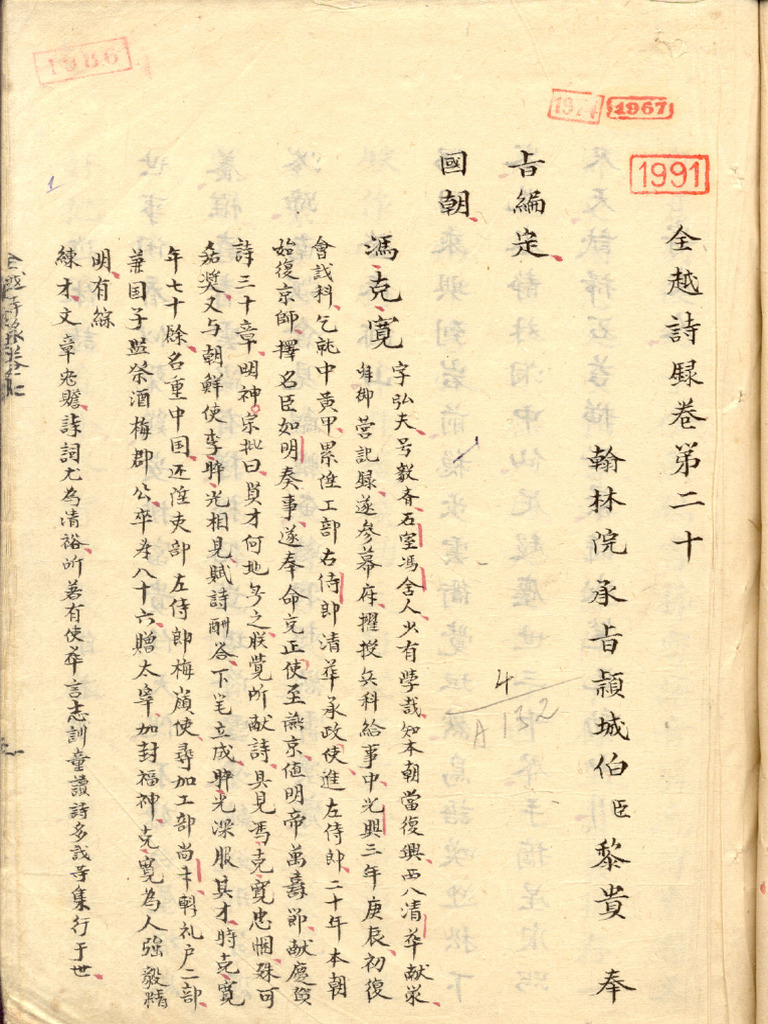 1986
1974
1967
1991
全越詩録卷第二十
翰林院承旨頴城伯臣黎貴 奉
旨編定
國朝
馮克寛
字弘夫号毅斉石室馮舍人少有學哉知本朝當復興西八清華献策
御营記録遂参幕府擢授兵科給事中光興三年庚辰初復
會試科乞就中黄甲累陞工部右侍郎清華承政使進左侍郎二十年本朝
始復京師擇名臣如明奏事遂奉命充正使至燕京值明帝萬壽節献慶賀
詩三十章明神宗批曰賢才何地無之朕覽所献詩具見馮克寛忠悃殊可
嘉奬又与朝鮮使李睟光相見賦詩酬答下笔立成睟光深服其才時克寛
年七十餘名重中国还陞吏部左侍郎梅嶺使尋加工部尚书轉礼户二部
兼国子监祭酒梅郡公卒年八十六贈太宰加封福神克寛為人強毅精
明有綜
練才文章宏贍詩詞尤為清裕所著有使華言志訓童讀詩多哉等集行于世
全越詩録卷二十
1
4
A 132